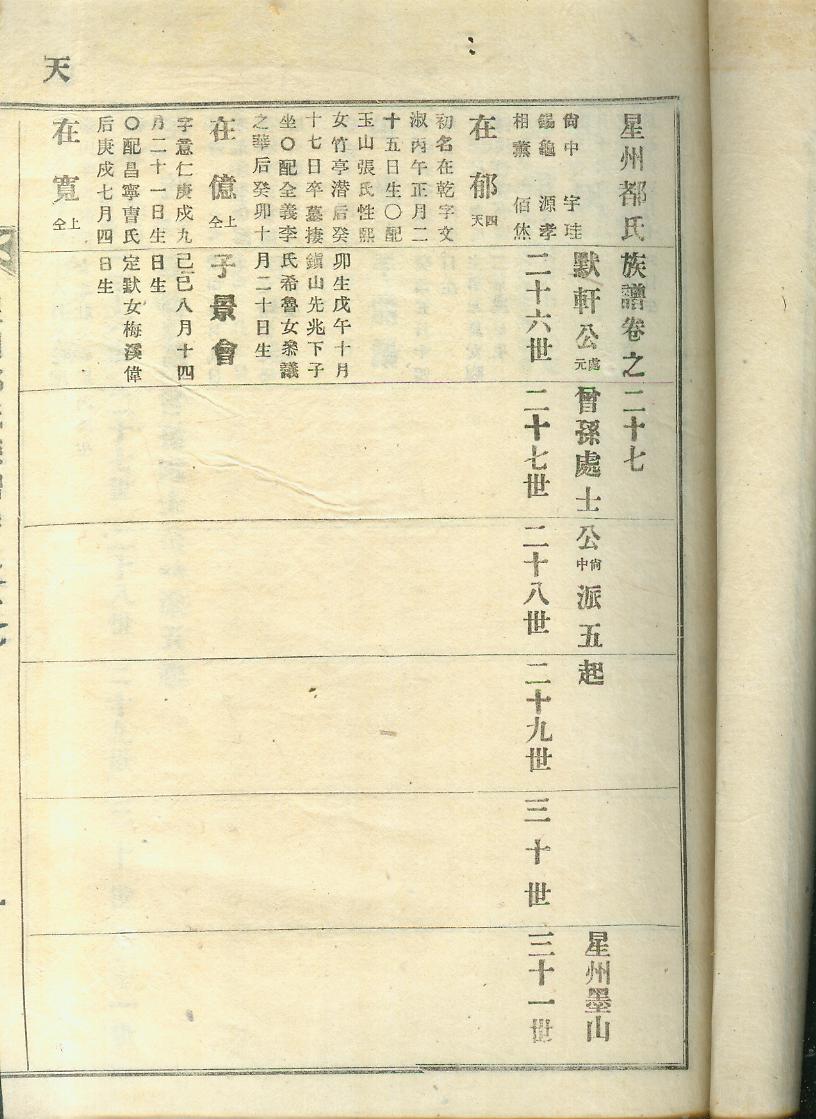 天
星州都氏族譜卷之二十七
默軒公處元曾孫處士公尙中派五起
星州墨山
尙中 宇珪
錫龜 源孝
相薰 佰烋
二十六世
二十七世
二十八世
二十九世
三十世
三十一世
在郁 四天
初名在乾字文
淑丙午正月二
十五日生〇配
玉山張氏性熙
女竹亭潜后癸卯生戊午十月
十七日卒墓捿鎭山先兆下子
坐〇配全義李氏希魯女叅議
之華后癸卯十月二十日生
在億 上仝 子景會
字意仁庚戌九 己巳八月十四
月二十一日生 日生
〇配昌寧曺氏定默女梅溪偉
后庚戌七月四日生
在寬 上仝